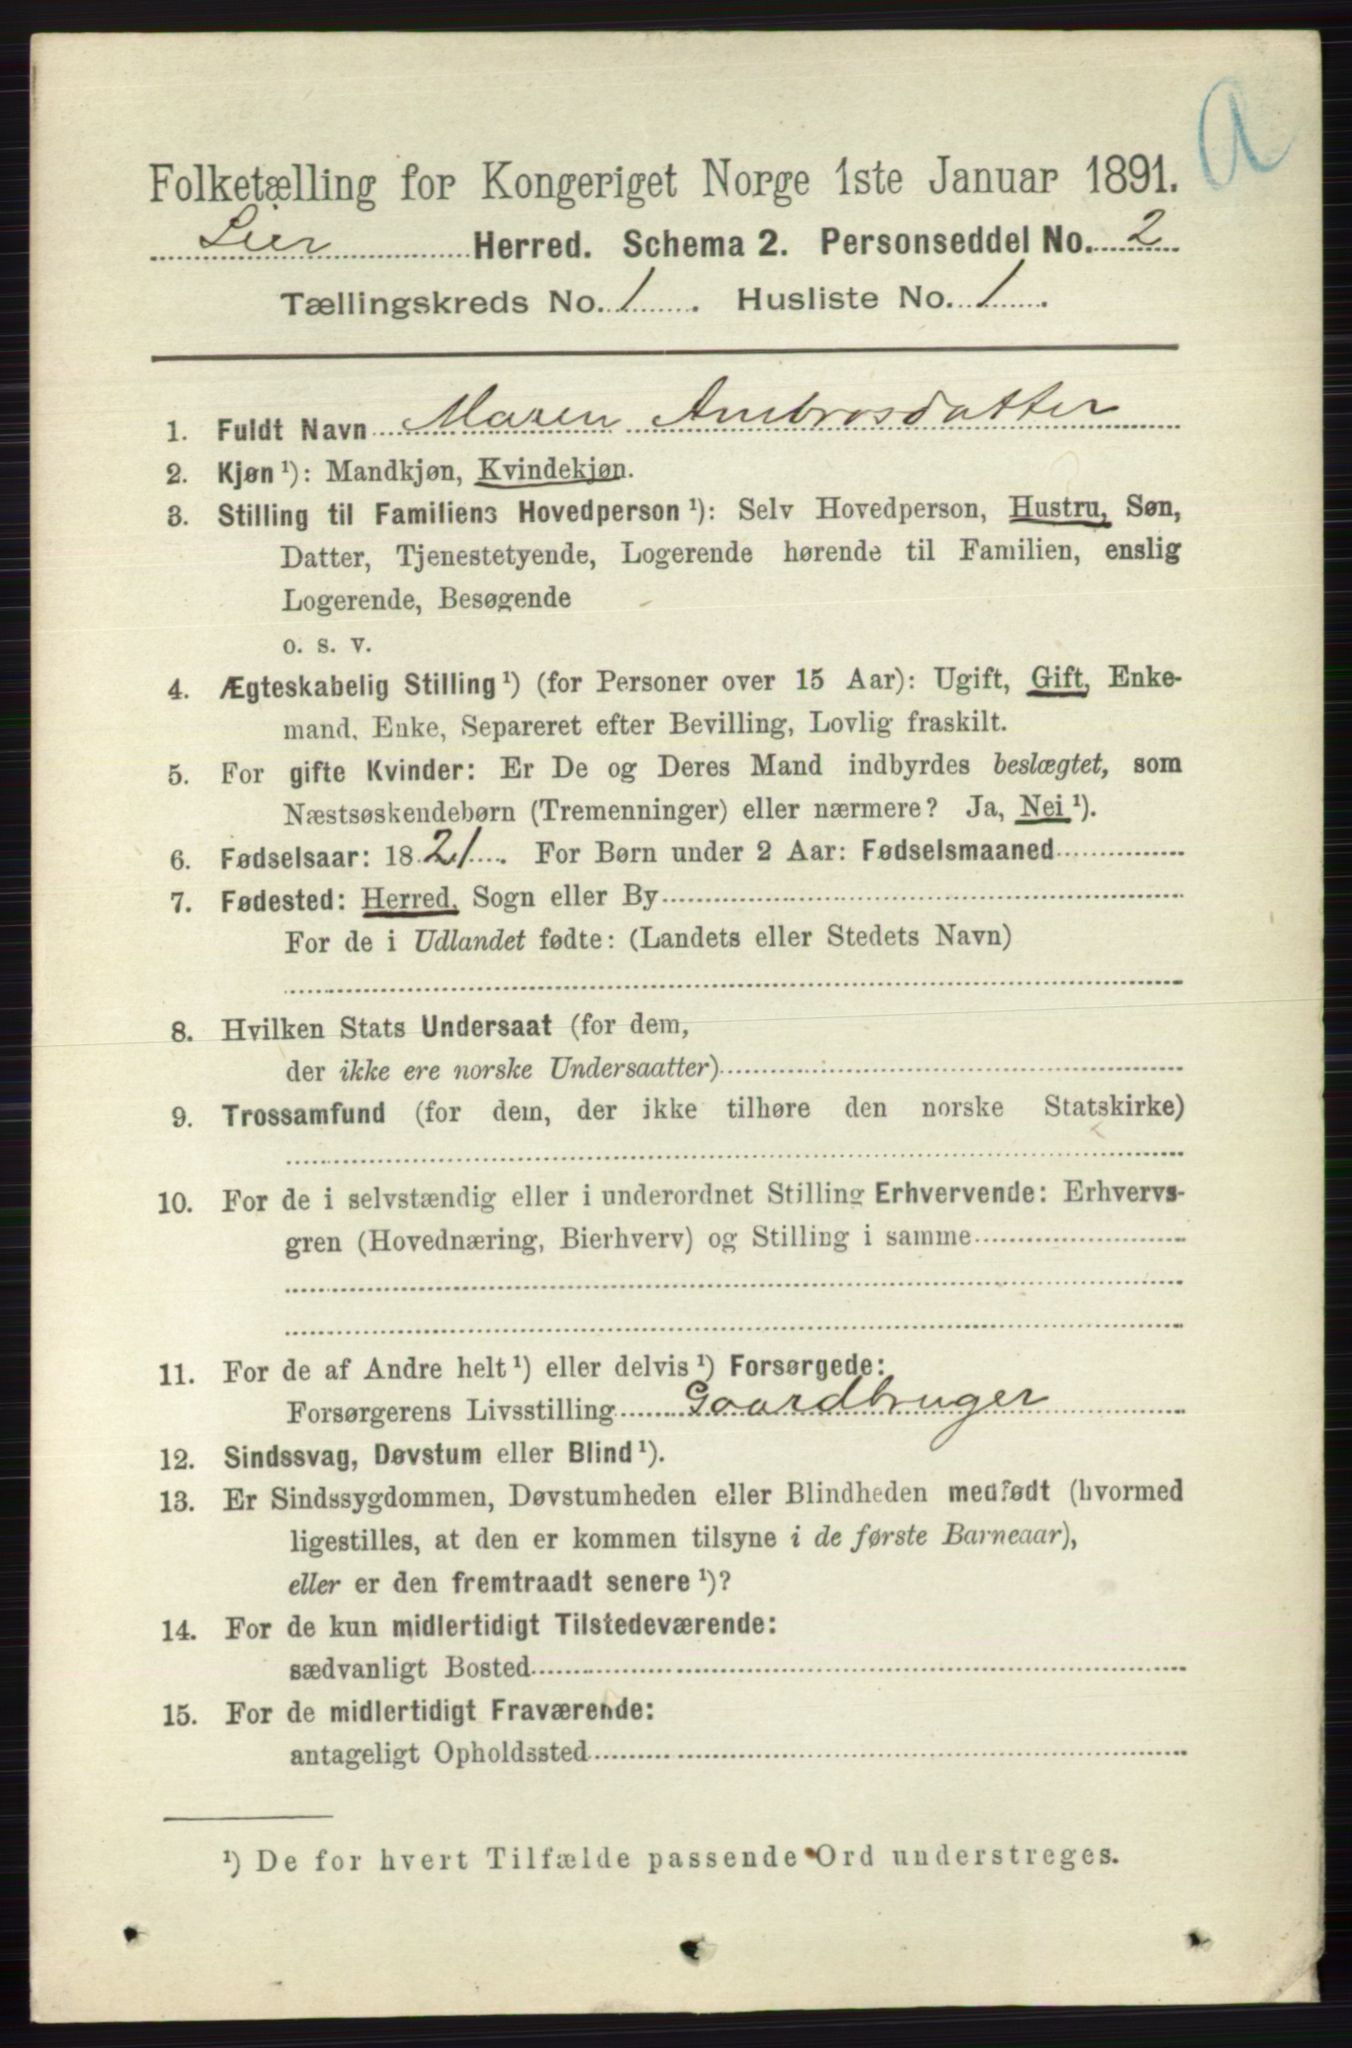 a
Folketælling for Kongeriget Norge 1ste Januar 1891.
Lier Herred. Schema 2. Personseddel No. 2
Tællingskreds No. 1. Husliste No. 1.
1. Fuldt Navn Maren Ambrosdatter
2. Kjøn ¹): Mandkjøn, Kvindekjøn.
3. Stilling til Familiens Hovedperson ¹): Selv Hovedperson, Hustru, Søn,
Datter, Tjenestetyende, Logerende hørende til Familien, enslig
Logerende, Besøgende
o. s. v.
4. Ægteskabelig Stilling ¹) (for Personer over 15 Aar): Ugift, Gift, Enke-
mand, Enke, Separeret efter Bevilling, Lovlig fraskilt.
5. For gifte Kvinder: Er De og Deres Mand indbyrdes beslægtet, som
Næstsøskendebørn (Tremenninger) eller nærmere? Ja, Nei ¹).
6. Fødselsaar: 1821. For Børn under 2 Aar: Fødselsmaaned
7. Fødested: Herred, Sogn eller By
For de i Udlandet fødte: (Landets eller Stedets Navn)
8. Hvilken Stats Undersaat (for dem,
der ikke ere norske Undersaatter)
9. Trossamfund (for dem, der ikke tilhøre den norske Statskirke)
10. For de i selvstændig eller i underordnet Stilling Erhvervende: Erhvervs-
gren (Hovednæring, Bierhverv) og Stilling i samme
11. For de af Andre helt ¹) eller delvis ¹) Forsørgede:
Forsørgerens Livsstilling Gaardbruger
12. Sindssvag, Døvstum eller Blind ¹).
13. Er Sindssygdommen, Døvstumheden eller Blindheden medfødt (hvormed
ligestilles, at den er kommen tilsyne i de første Barneaar),
eller er den fremtraadt senere ¹)?
14. For de kun midlertidigt Tilstedeværende:
sædvanligt Bosted
15. For de midlertidigt Fraværende:
antageligt Opholdssted
¹) De for hvert Tilfælde passende Ord understreges.